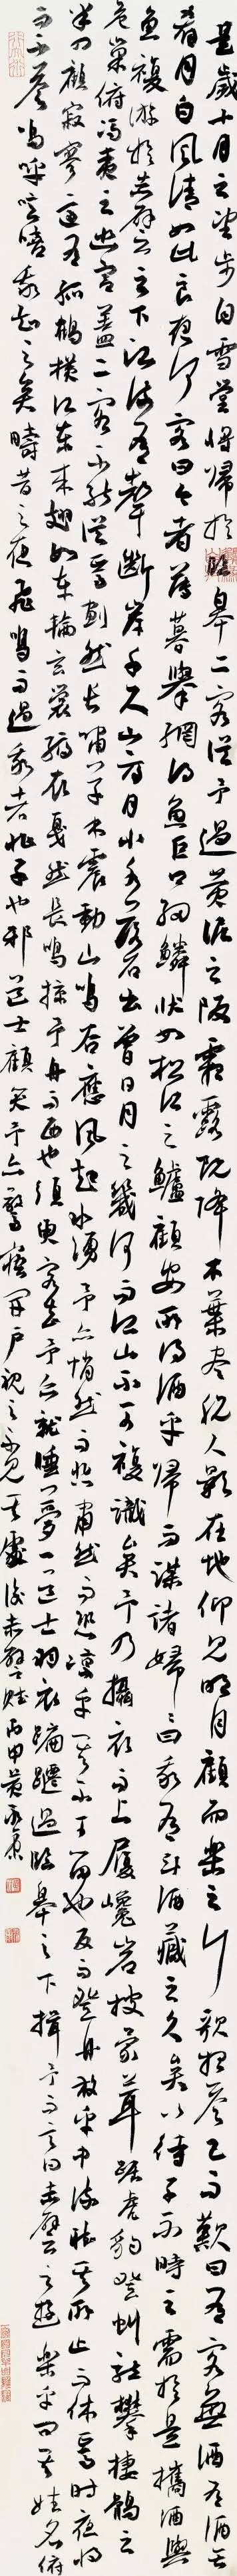 是歲十月之望步自雪堂將歸於臨皋二客從予過黃泥之阪霜露既降木葉盡脫人影在地仰見明月顧而樂之行歌相答已而歎曰有客無酒有酒無
肴月白風清如此良夜何客曰今者薄暮舉網得魚巨口細鱗狀如松江之鱸顧安所得酒乎歸而謀諸婦婦曰我有斗酒藏之久矣以待子不時之需於是攜酒與
魚複游於赤壁之下江流有聲斷岸千尺山高月小水落石出曾日月之幾何而江山不可複識矣予乃攝衣而上履巉岩披蒙茸踞虎豹登虯龍攀棲鶻之
危巢俯馮夷之幽宮蓋二客不能從焉劃然長嘯草木震動山鳴谷應風起水湧予亦悄然而悲肅然而恐凜乎其不可留也反而登舟放乎中流聽其所止而休焉時夜將
半四顧寂寥適有孤鶴橫江東來翅如車輪玄裳縞衣戛然長鳴掠予舟而西也須臾客去予亦就睡夢一道士羽衣蹁躚過臨皋之下揖予而言曰赤壁之遊樂乎問其姓名俯
而不答嗚呼噫嘻我知之矣疇昔之夜飛鳴而過我者非子也邪道士顧笑予亦驚悟開戶視之不見其處後赤壁賦丙申黃